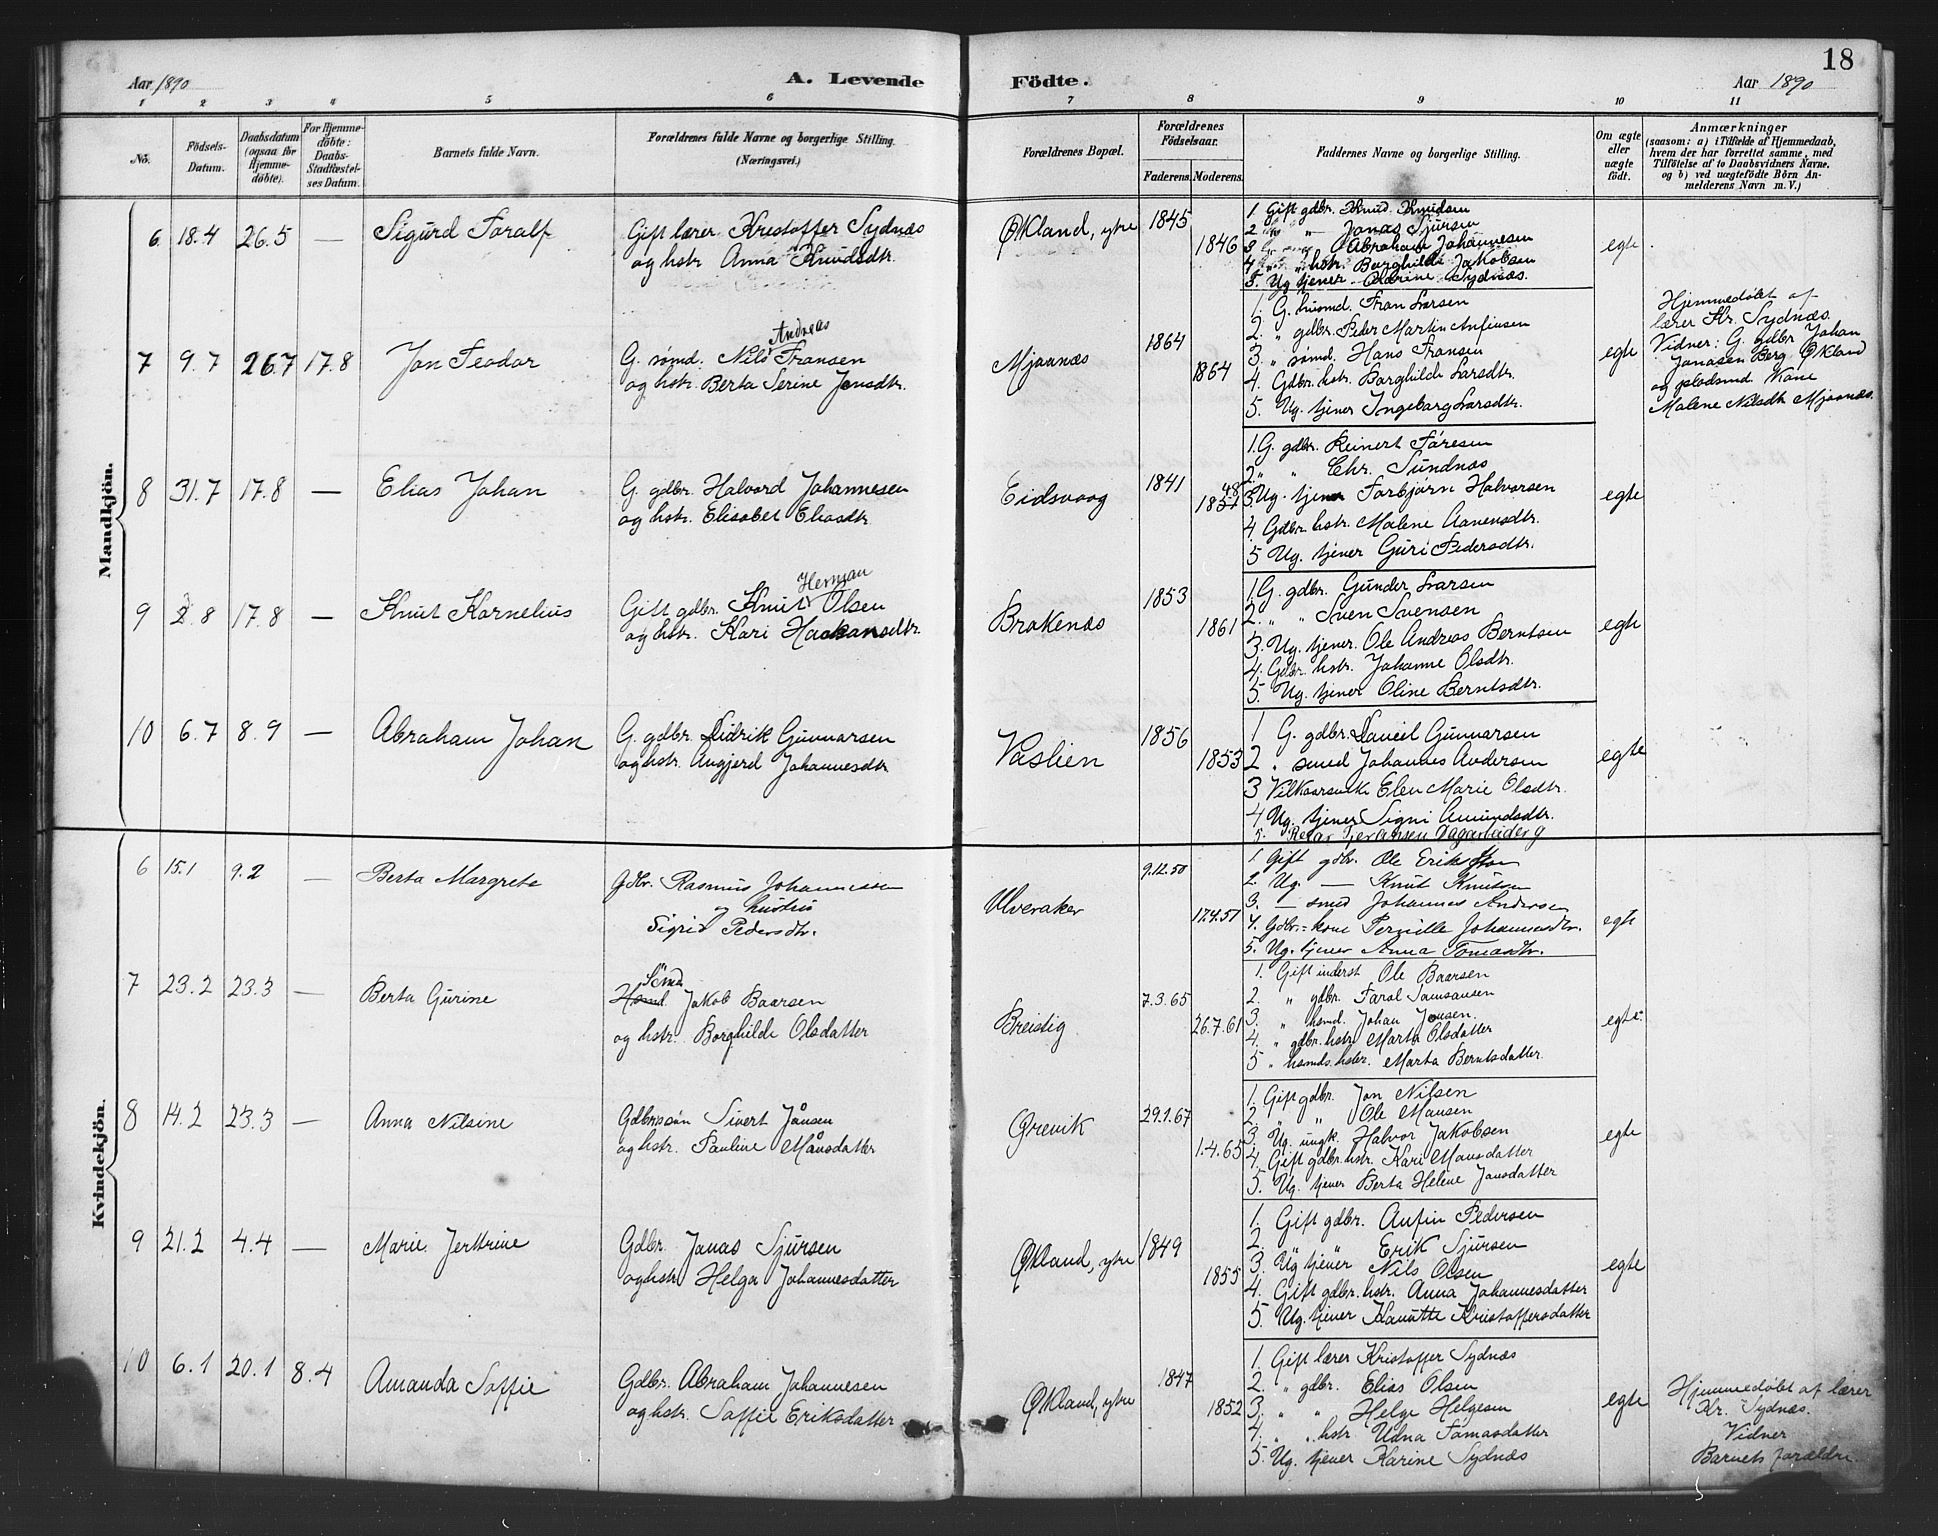 18
Aar 1890
A. Levende
Födte.
Aar 1890
1 2 3 4 5 6 7 8 9 10 11
No.
Födsels-Datum.
Daabsdatum (ogsaa for Hjemme-döbte).
For Hjemme-döbte: Daabs-Stadfæstel-ses Datum.
Barnets fulde Navn.
Forældrenes fulde Navne og borgerlige Stilling.
(Næringsvei.)
Forældrenes Bopæl.
Forældrenes Födselsaar.
Faderens. Moderens.
Faddernes Navne og borgerlige Stilling.
Om ægte eller uægte födt.
Anmærkninger
(saasom: a) i Tilfælde af Hjemmedaab,
hvem der har forrettet samme, med
Tilföielse af to Daabsvidners Navne.
og b) ved uægtefödte Börn An-
melderens Navn m. V.)
Mandkjön.
6 18.4 26.5 — Sigurd Toralf
Gift lærer Kristoffer Sydnæs
og hstr. Anna Knudsdtr.
Økland, ytre 1845 1846
1 Gift gdbr. Knud Knudsen
2 " — Jonas Sjursen
3 Abraham Johannesen
4 " hstr. Borghilde Jakobsen
5. Ug. tjener Karine Sydnæs.
egte
7 9.7 26.7 17.8 Jon Teodor
Andreas
G. sømd. Nils Fransen
og hstr. Berta Serine Jonsdtr.
Mjaanæs 1864 1864
1. G. husmd. Fran Larsen
2. " gdbr. Peder Martin Anfinsen
3. " sømd. Hans Fransen
4. Gdbr. hstr. Borghilde Larsdtr.
5. Ug. tjener Ingeborg Larsdtr.
egte
Hjemmedøbt af
lærer Kr. Sydnæs.
Vidner: G. gdbr Johan
Jonasen Berg, Økland
og pladsmd. Kone
Malene Nilsdtr Mjaanæs.
8 31.7 17.8 — Elias Johan
G. gdbr. Halvord Johannesen
og hstr. Elisabet Eliasdtr.
Eidsvaag 1841 48 1851
1. G. gdbr. Reinert Toresen
2. " " Chr. Sundnæs
3. Ug. tjener Torbjørn Halvorsen
4 Gdbr. hstr. Malene Aanensdtr.
5 Ug. tjener Guri Pedersdtr.
egte
9 2.8 17.8 — Knut Kornelius
Herman
Gift gdbr. Knut Olsen
og hstr. Kari Haakansdtr.
Brakenæs 1853 1861
1. G. gdbr. Gunder Larsen
2. " " Sven Svensen
3. Ug. tjener. Ole Andreas Berntsen
4. Gdbr. hstr. Johanne Olsdtr.
5. Ug. tjener Oline Berntsdtr.
egte
10 6.7 8.9 — Abraham Johan
G. gdbr. Didrik Gunnarsen
og hstr. Angjerd Johannesdtr
Vaslien 1856 1853
1 G. gdbr. Daniel Gunnarsen
2 " smed Johannes Andersen
3 Vilkaarsenke Elen Marie Olsdtr.
4 Ug. tjener Signi Amundsdtr.
egte
Kvindekjön.
6 15.1 9.2 — Berta Margrete
Gdbr. Rasmus Johannessen
og hustru
Sigrid Pedersdtr.
Ulveraker 9.12.50 17.4.51
1 Gift gdbr. Ole Erikson
2. Ug. — Knut Knutsen
3. — smed Johannes Andersen
4. Gdbr.-kone Pernille Johannesdtr.
5. Ug. tjener Anna Tomasdtr.
egte
7 23.2 23.3 — Berta Gurine
Sömd
Hsmd. Jakob Baarsen
og hstr. Borghilde Olsdatter
Breistig 7.3.65 26.7.61
1. Gift inderst Ole Baarsen
2. " gdbr. Tarol Samsonsen
3. " hsmd. Johan Jonsen.
4. " gdbr. hstr. Marta Olsdatter
5 " hsmds. hstr. Marta Berntsdatter.
egte
8 14.2 23.3 — Anna Nilsine
Gdbrssön Sivert Jånsen
og hstr. Pauline Månsdatter
Grevik 29.1.67 1.4.65
1. Gift gdbr. Jon Nilsen
2. " " Ole Monsen
3. Ug. ungk. Halvor Jakobsen
4. Gift gdbr. hstr. Kari Monsdatter
5. Ug. tjener Berta Helene Jonsdatter
egte
9 21.2 4.4 — Marie Jertrine
Gdbr. Jonas Sjursen
og hstr. Helga Johannesdatter
Økland, ytre 1849 1855
1. Gift gdbr. Anfin Pedersen
2. " " Erik Sjursen
3. Ug tjener Nils Olsen
4. Gift gdbr. hstr. Anna Johannesdatter
5. Ug. tjener Kanutte Kristoffersdatter
egte
10 6.1 20.1 8.4 Amanda Soffie
Gdbr. Abraham Johannesen
og hstr. Soffie Eriksdatter
Økland, ytre 1847 1852
1. Gift lærer Kristoffer Sydnæs
2. " gdbr. Elias Olsen
3. " " Helge Helgesen
4. " " hstr. Udna Tomasdatter
5. Ug. tjener Karine Sydnæs
egte
Hjemmedøbt af lærer
Kr. Sydnæs.
Vidner
Barnets forældre.